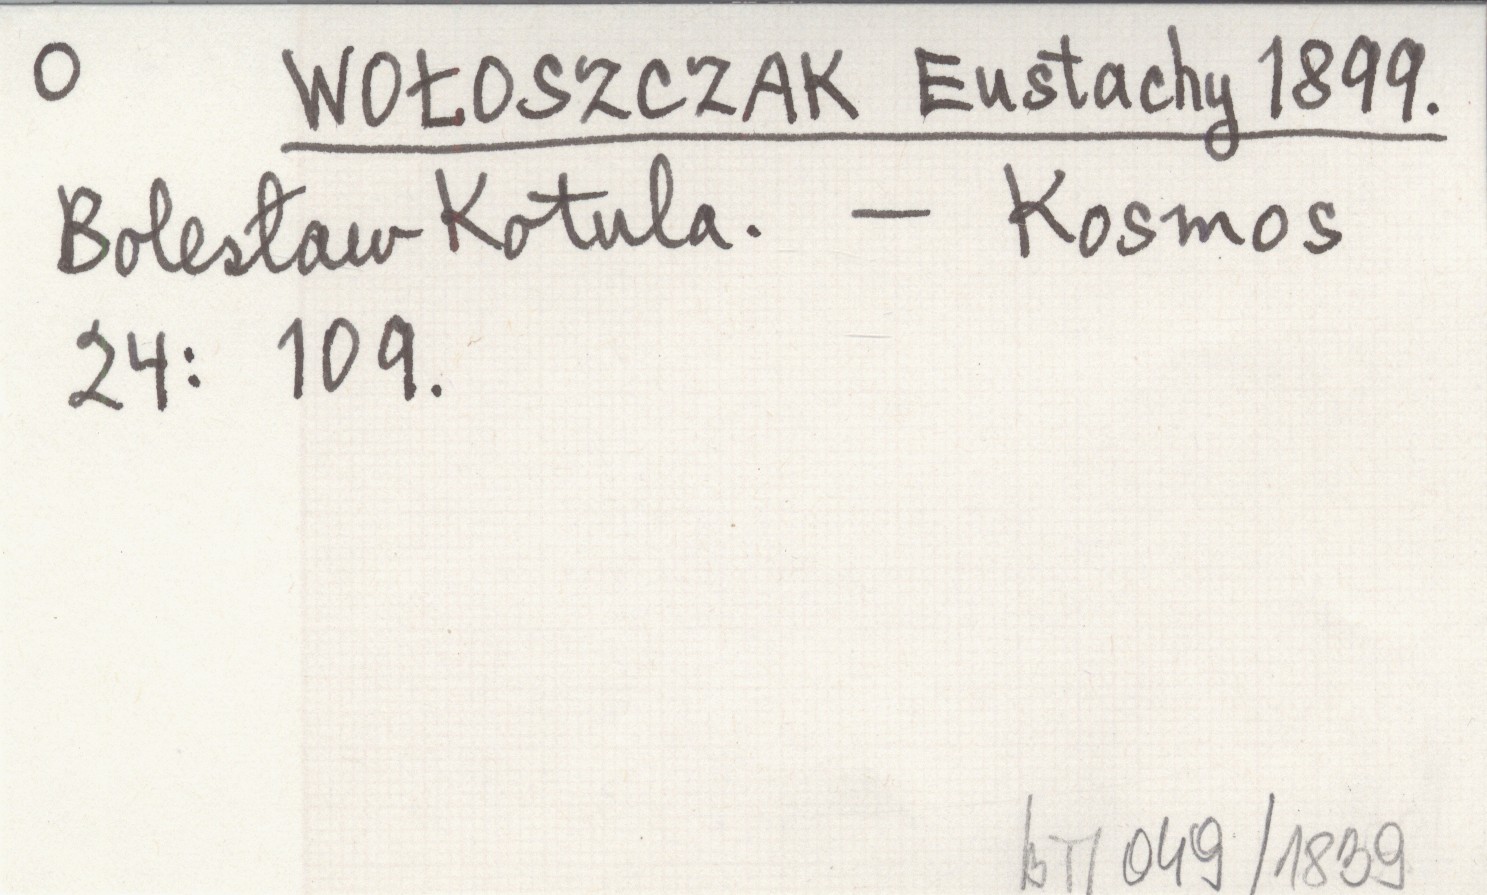 O WOŁOSZCZAK Eustachy 1899.
Bolesław Kotula. — Kosmos
24: 109.
049/1839